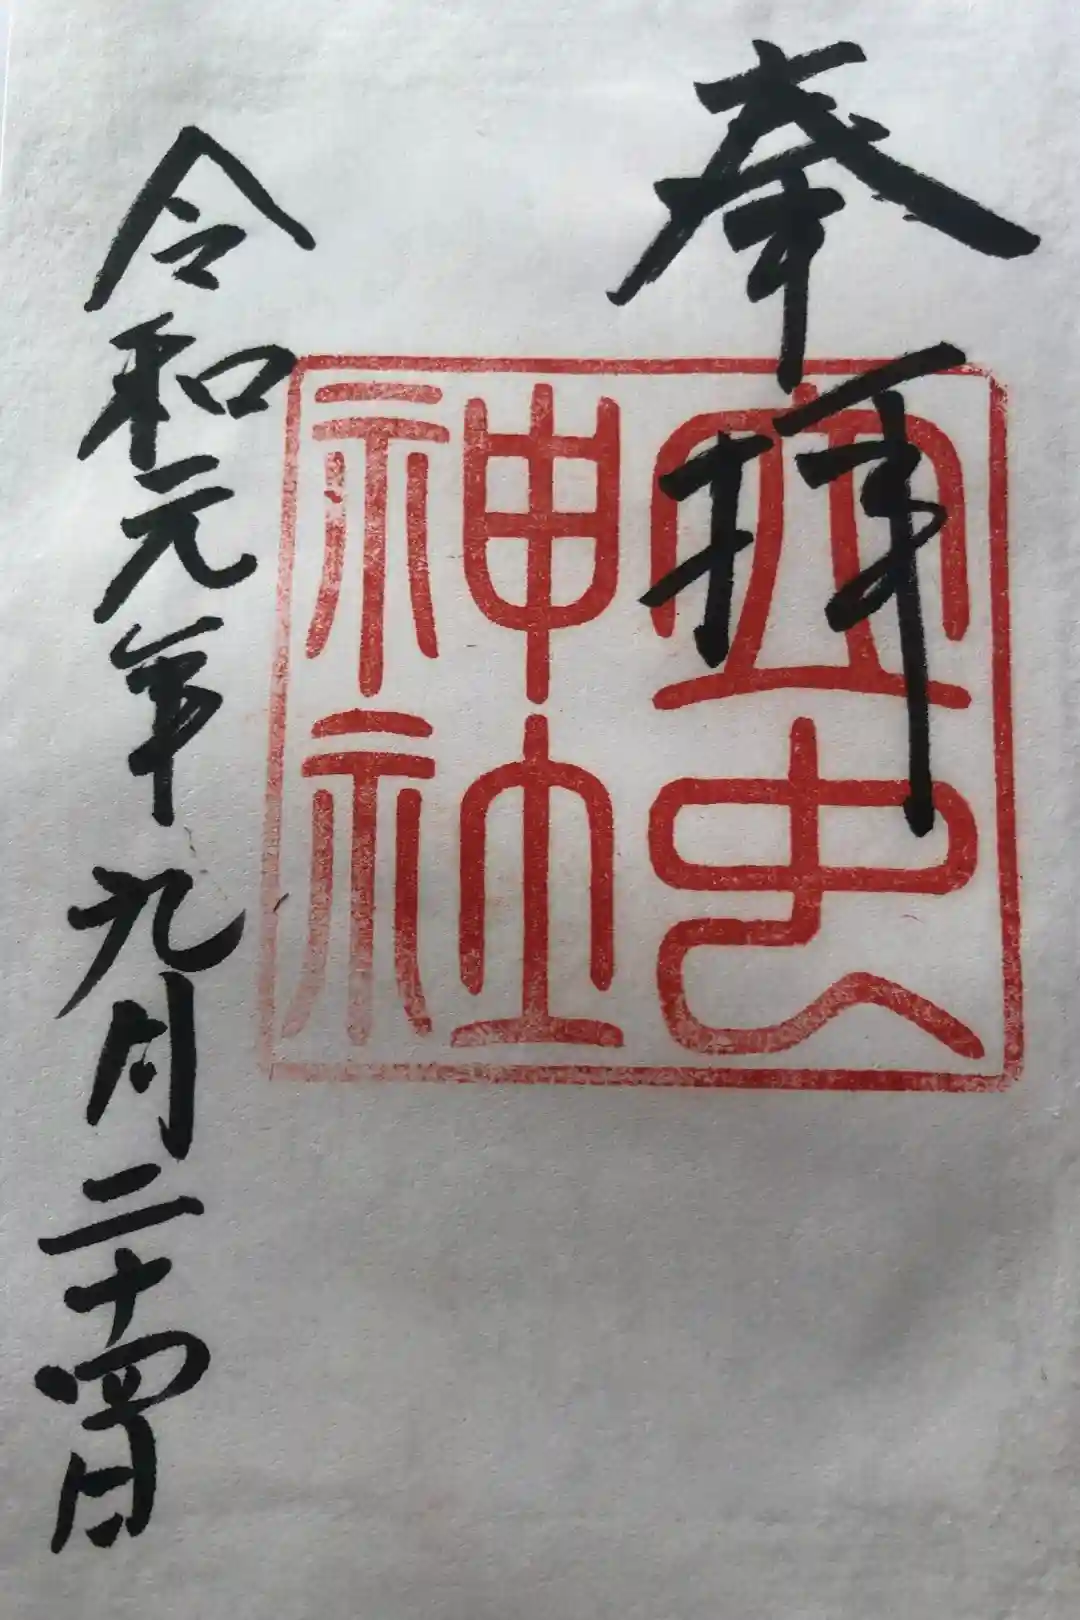 奉拝
立虫
神社
令和元年九月二十四日